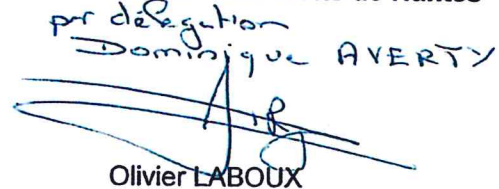 de Nantes
par délégation
Dominique AVERTY
Olivier LABOUX